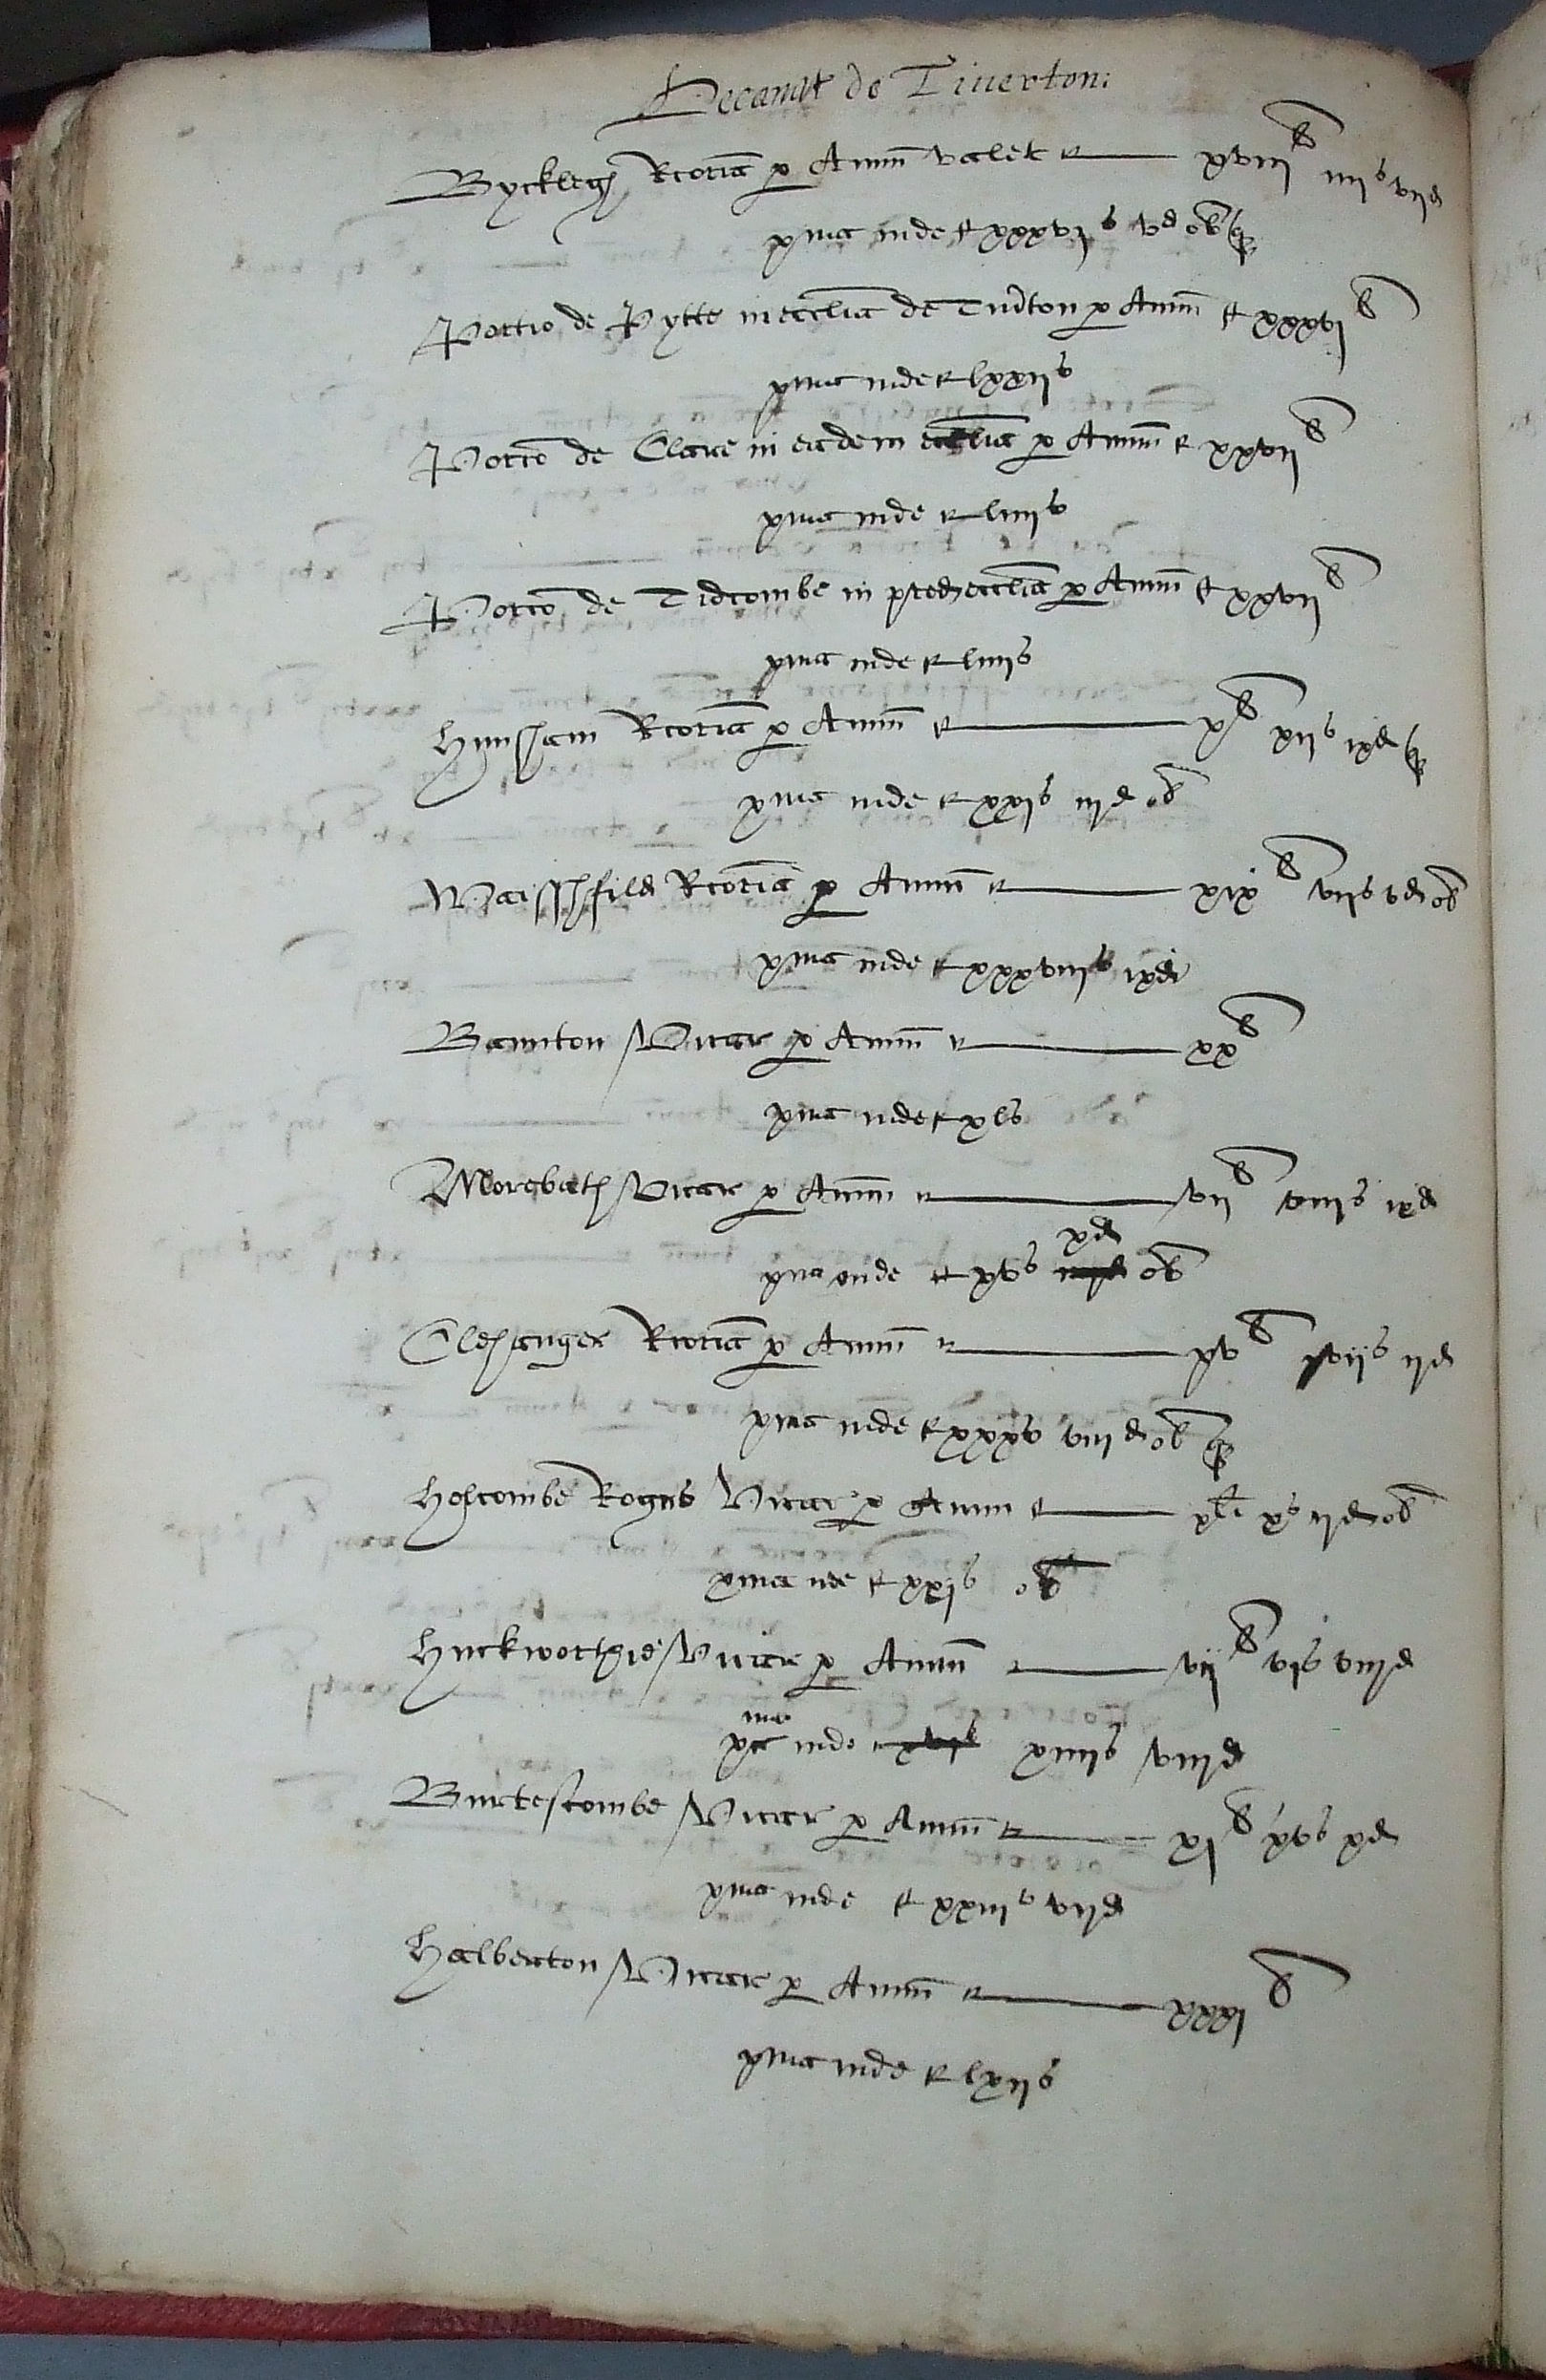 Decanat de Tiverton:
Bycklegh Rcoria p Annu valet r xviij li iiijs vijd
xma inde r xxxvjs vd ob q
Portio de Pytte in ecclia de Tuʳton p Annu r xxxvj li
xma inde r lxxijs
Porco de Clare in eadem ecclia p Annu r xxvij li
xma inde r liiijs
Porco de Tidcombe in pred ecclia p Annu r xxvij li
xma inde r liiijs
Hunsham Rcoria p Annu r x li xijs ixd q
xma inde r xxjs iijd ob
Waisshfild Rcoria p Annu r xix li vijs vd ob
xma inde r xxxviijs ixd
Bamton Vicar p Annu r xx li
xma inde r xls
Morebath Vicar p Annu r vij li viijs ixd
xma inde r xvs xd ob
Clehanger Rcoria p Annu r xv li xvijs ijd
xma inde r xxxs viijd ob q
Holcombe Rogus Vicar p Annu r x li xs ijd ob
xma inde r xxjs ob
Huckworthie Vicar p Annu r vij li vjs viijd
xma inde xiiijs viijd
Burlescombe Vicar p Annu r xj li xvs xd
xma inde r xxiijs vijd
Halberton Vicar p Annu r xxxj li
xma inde r lxijs